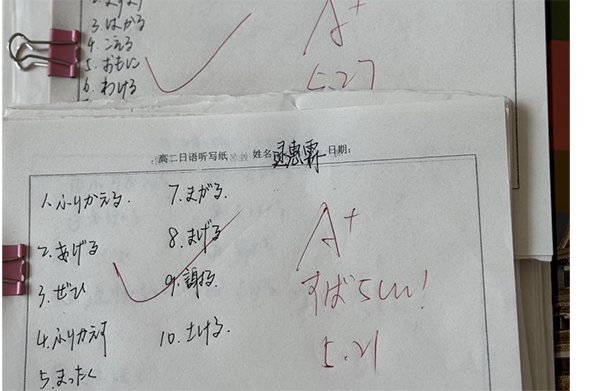 3.はかる
4.こえる
5.おもに
6.わける
A+
5.27
高二日语听写纸 姓名 日期:
1.ふりかえる.
2.あげる
3.ぜひ
4.ふりかえす
5.まったく
7.まがる.
8.まげる
9.調る.
10.上ける.
A+
すばらしい!
5.21